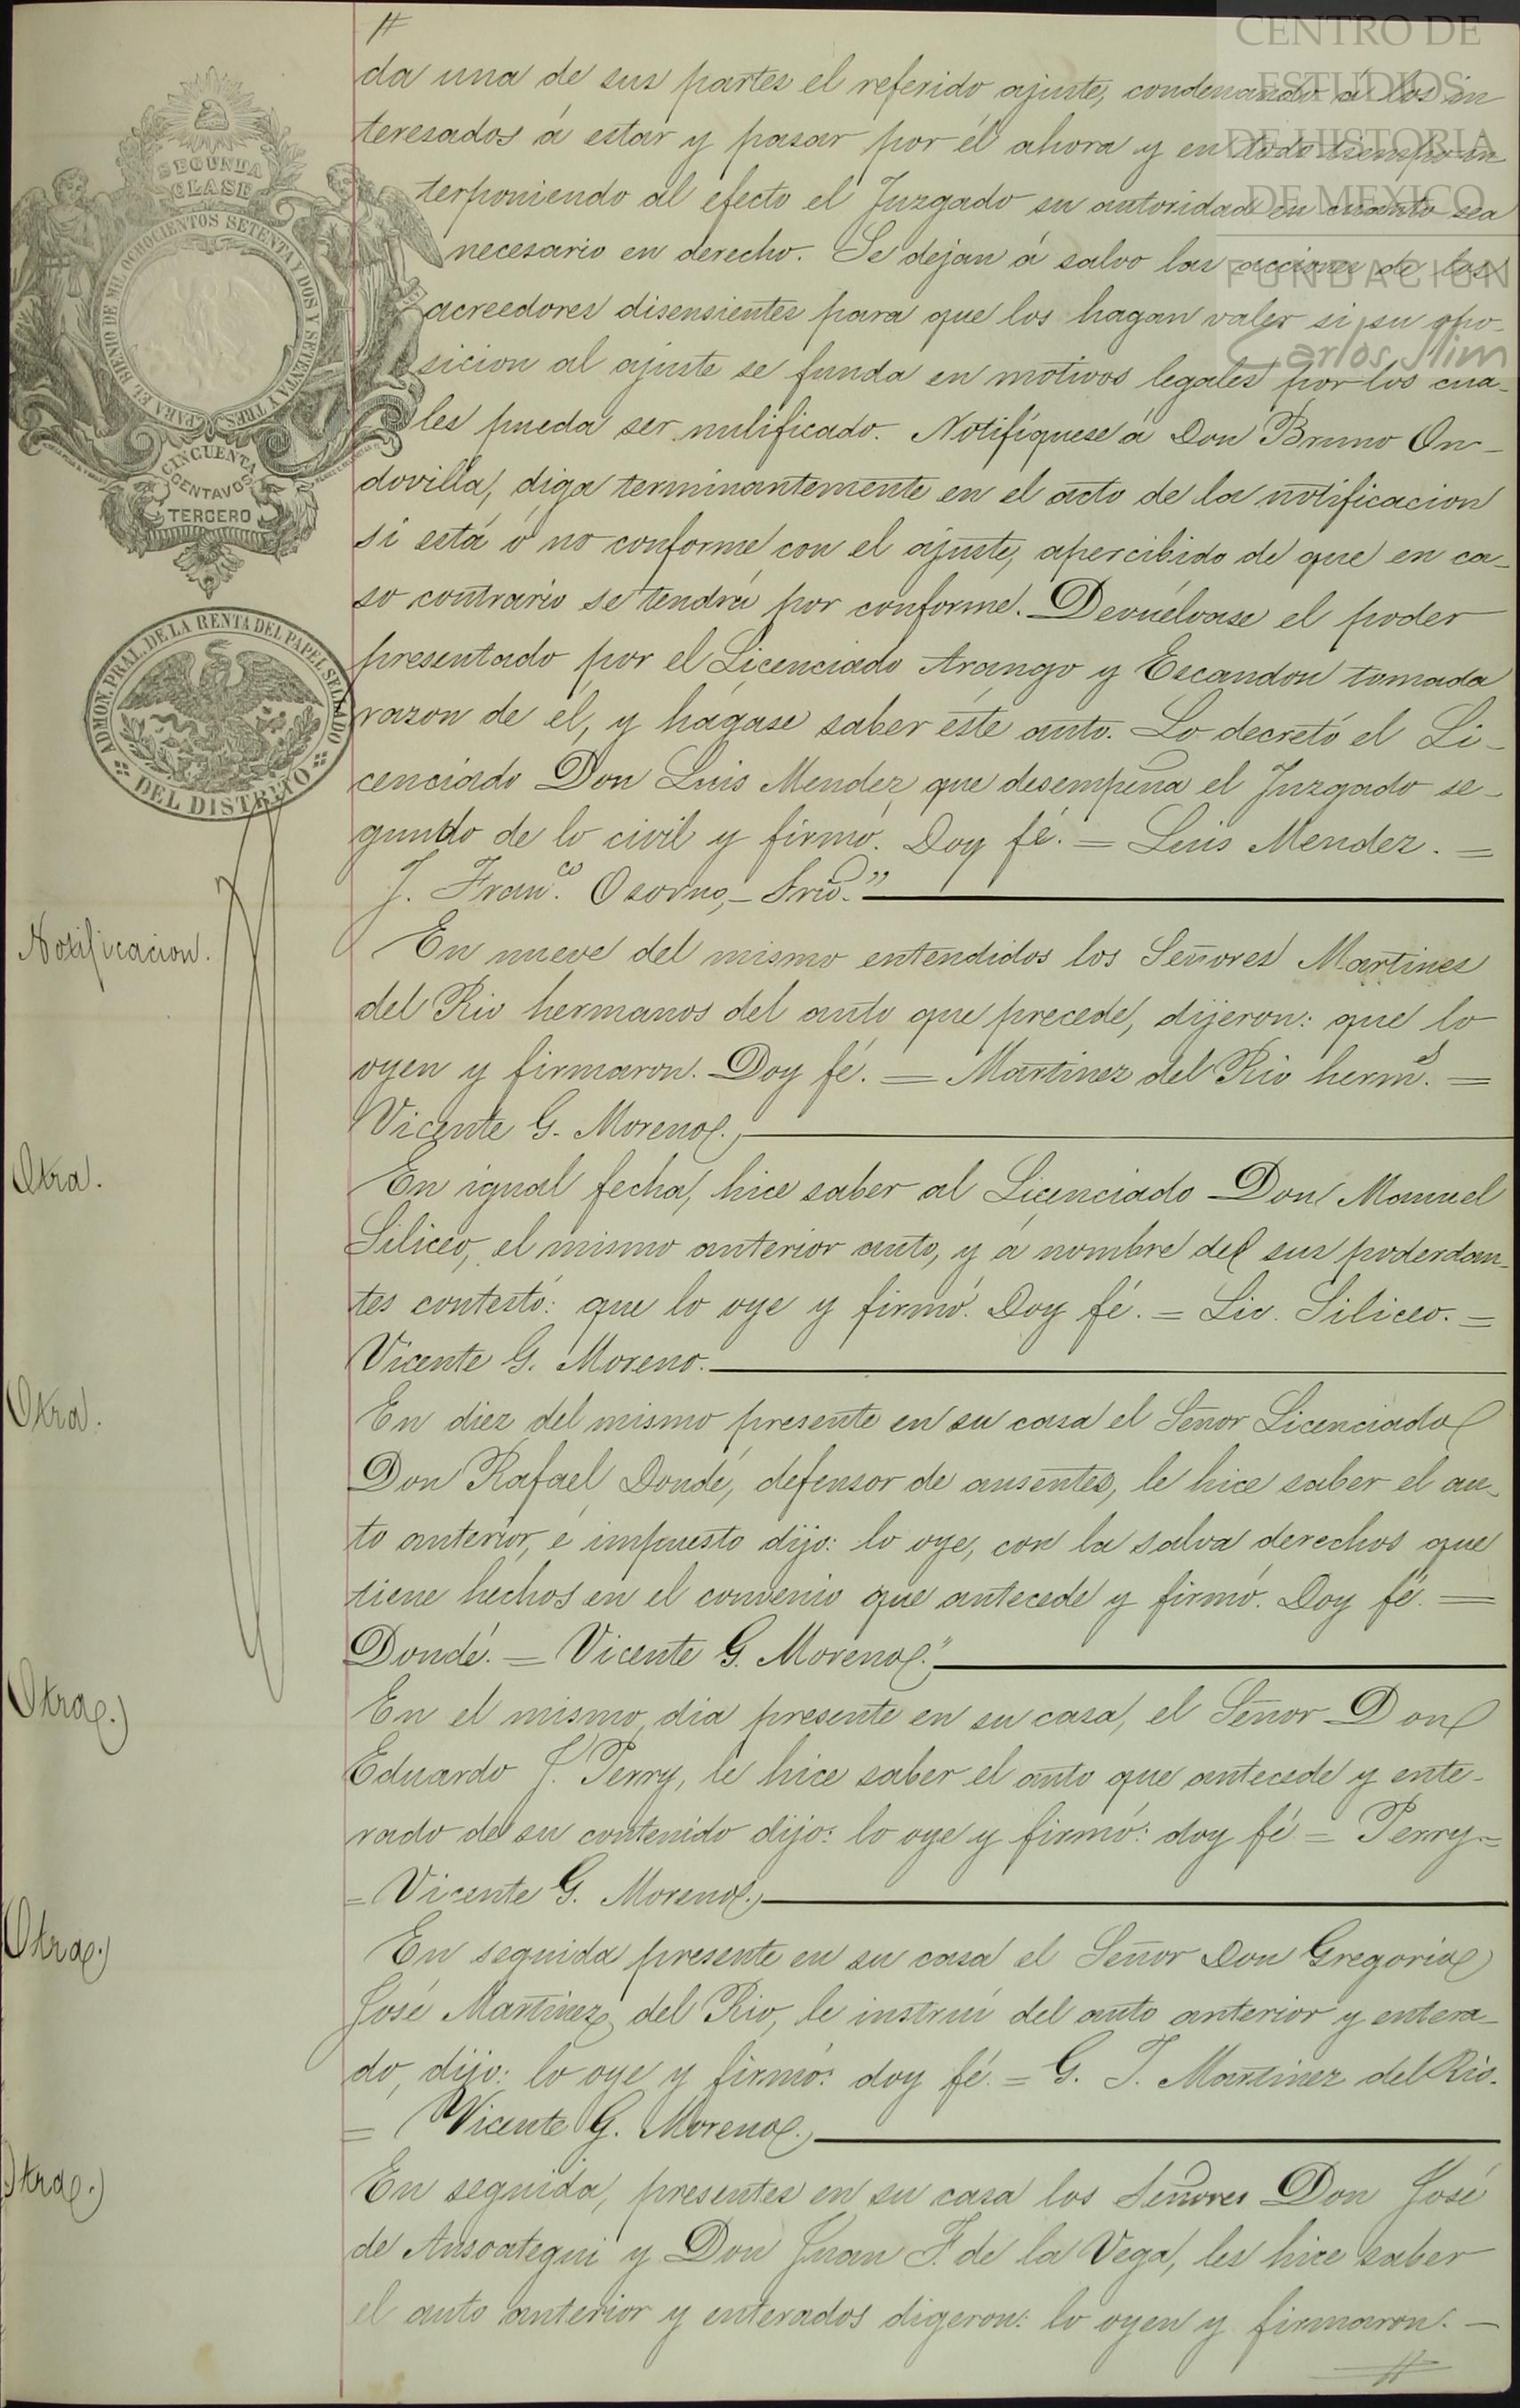 CENTRO DE
ESTUDIOS
DE HISTORIA
DE MEXICO
FUNDACION
Carlos Slim
SEGUNDA
CLASE
PARA EL BIENIO DE MIL OCHOCIENTOS SETENTA Y DOS Y SETENTA Y TRES
CINCUENTA
CENTAVOS
TERCERO
ADMON. PRAL. DE LA RENTA DEL PAPEL SELLADO
DEL DISTRITO
da una de sus partes el referido ajuste, condenando á los in
teresados á estar y pasar por él ahora y en todo tiempo in
terponiendo al efecto el Juzgado su autoridad en cuanto sea
necesario en derecho. Se dejan á salvo las acciones de los
acreedores disensientes para que los hagan valer si su opo-
sicion al ajuste se funda en motivos legales por los cua-
les pueda ser nulificado. Notifíquese á Don Bruno On-
dovilla, diga terminantemente en el acto de la notificacion
si está ó no conforme con el ajuste, apercibido de que en ca-
so contrario se tendrá por conforme. Devuélvase el poder
presentado por el Licenciado Arango y Escandon tomada
razon de él, y hágase saber éste auto. Lo decretó el Li-
cenciado Don Luis Mendez que desempeña el Juzgado se-
gundo de lo civil y firmó. Doy fé. = Luis Mendez. =
J. Fran.co Osorno, - Srio."
Notificacion.
En nueve del mismo entendidos los Señores Martinez
del Rio hermanos del auto que precede, dijeron: que lo
oyen y firmaron. Doy fé. = Martinez del Rio herm.s =
Vicente G. Moreno.
Otra.
En igual fecha, hice saber al Licenciado Don Manuel
Siliceo, el mismo anterior auto, y á nombre de sus poderdan-
tes contestó: que lo oye y firmó. Doy fé. = Lic. Siliceo. =
Vicente G. Moreno.
Otra.
En diez del mismo presente en su casa el Señor Licenciado
Don Rafael Dondé, defensor de ausentes, le hice saber el au-
to anterior, é impuesto dijo: lo oye, con la salva derechos que
tiene hechos en el convenio que antecede y firmó. Doy fé. =
Dondé. = Vicente G. Moreno."
Otra.
En el mismo dia presente en su casa, el Señor Don
Eduardo J. Perry, le hice saber el auto que antecede y ente-
rado de su contenido dijo: lo oye y firmó: doy fé = Perry =
= Vicente G. Moreno.
Otra.
En seguida presente en su casa el Señor Don Gregorio
José Martinez del Rio, le instruí del auto anterior y entera-
do, dijo: lo oye y firmó: doy fé. = G. J. Martinez del Rio.
= Vicente G. Moreno.
Otra.
En seguida, presentes en su casa los Señores Don José
de Ansoategui y Don Juan F. de la Vega, les hice saber
el auto anterior y enterados digeron: lo oyen y firmaron. -